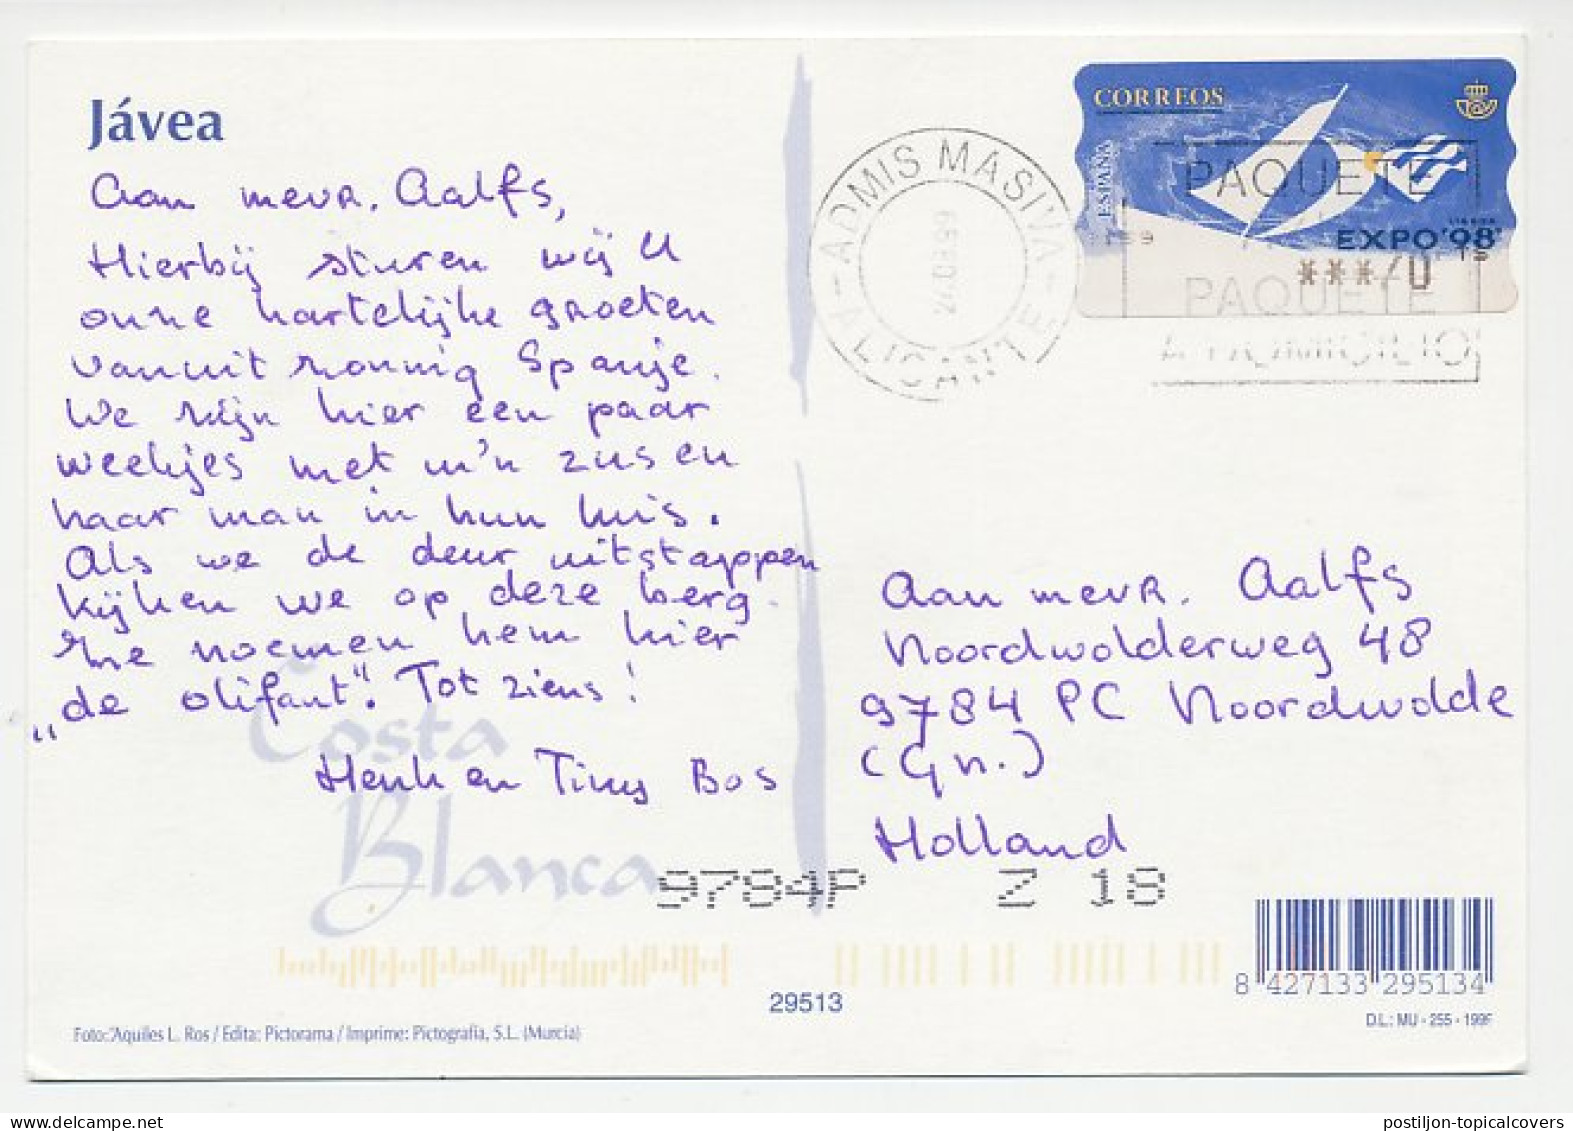 Jávea
Aan mevr. Aalfs,
Hierbij sturen wij U
onze hartelijke groeten
vanuit zonnig Spanje.
We zijn hier een paar
weekjes met m'n zus en
haar man in hun huis.
Als we de deur uitstappen
kijken we op deze berg.
Ze noemen hem hier
„de olifant". Tot ziens!
Henk en Tiny Bos
Costa
Blanca
CORREOS
ESPAÑA
LISBOA
EXPO'98
ADMIS MASIVA
ALICANTE
24.03.99
PAQUETE
PAQUETE
A DOMICILIO
Aan mevr. Aalfs
Noordwolderweg 48
9784 PC Noordwolde
(Gn.)
Holland
9784P Z 18
29513
8 427133 295134
D.L.: MU - 255 - 199
Foto: Aquiles L. Ros / Edita: Pictorama / Imprime: Pictografía, S.L. (Murcia)
postiljon-topicalcovers